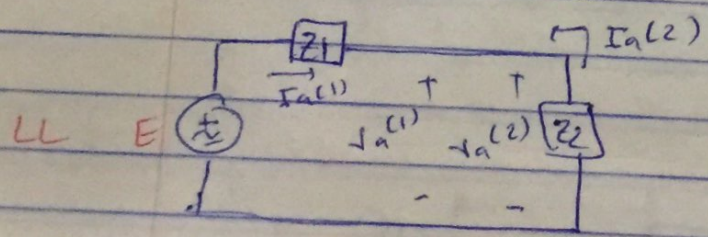 Z1
Ia(2)
Ia(1)
+ +
LL E ±
Va(1) Va(2) Z2
- -